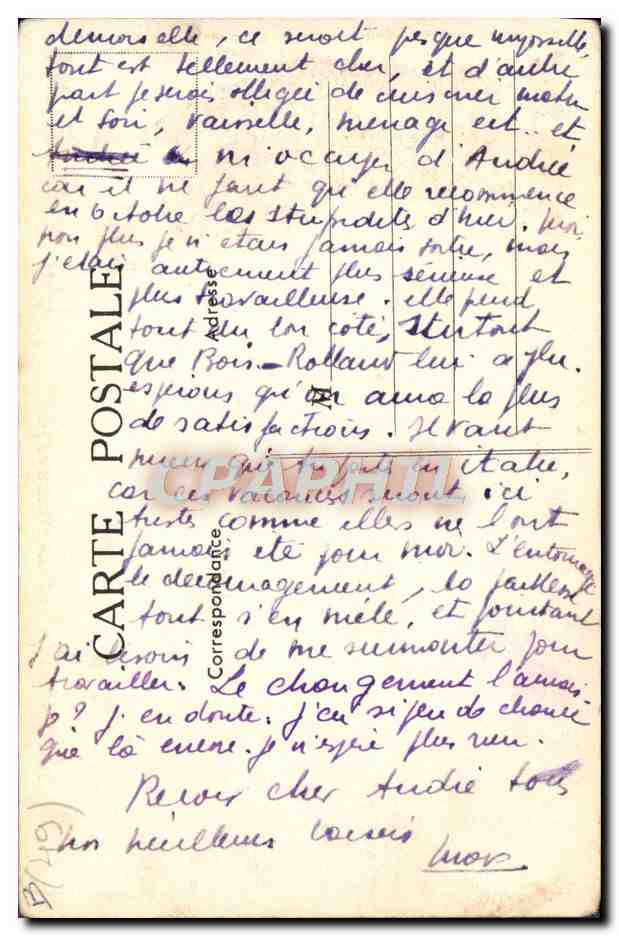 demoiselle, ce serait presque impossible
tout est tellement cher, et d'autre
part je serais obligée de cuisiner matin
et soir, vaisselle, ménage est.. et
m'occuper d'Andrée
car il ne faut qu'elle recommence
en octobre les stupidités d'hier. Moi
non plus je n'étais jamais sortie, mais
j'étais autrement plus sérieuse et
plus travailleuse. elle prend
tout du bon côté, surtout
que Bois-Rolland lui a plu.
espérons qu'on aura là plus
de satisfactions. Il vaut
mieux que tu partes en Italie,
car ces vacances seront ici
tristes comme elles ne l'ont
jamais été pour moi. L'entourage
le déménagement, la faiblesse
tout s'en mêle, et pourtant
j'ai besoin de me surmonter pour
travailler. Le changement l'aurais
je? J'en doute. j'ai si peu de chance
que là encore je n'espère plus rien.
Reçois cher André tous
nos meilleurs baisers
CARTE POSTALE
Correspondance
Adresse
M
CPAPHIL
B/49)